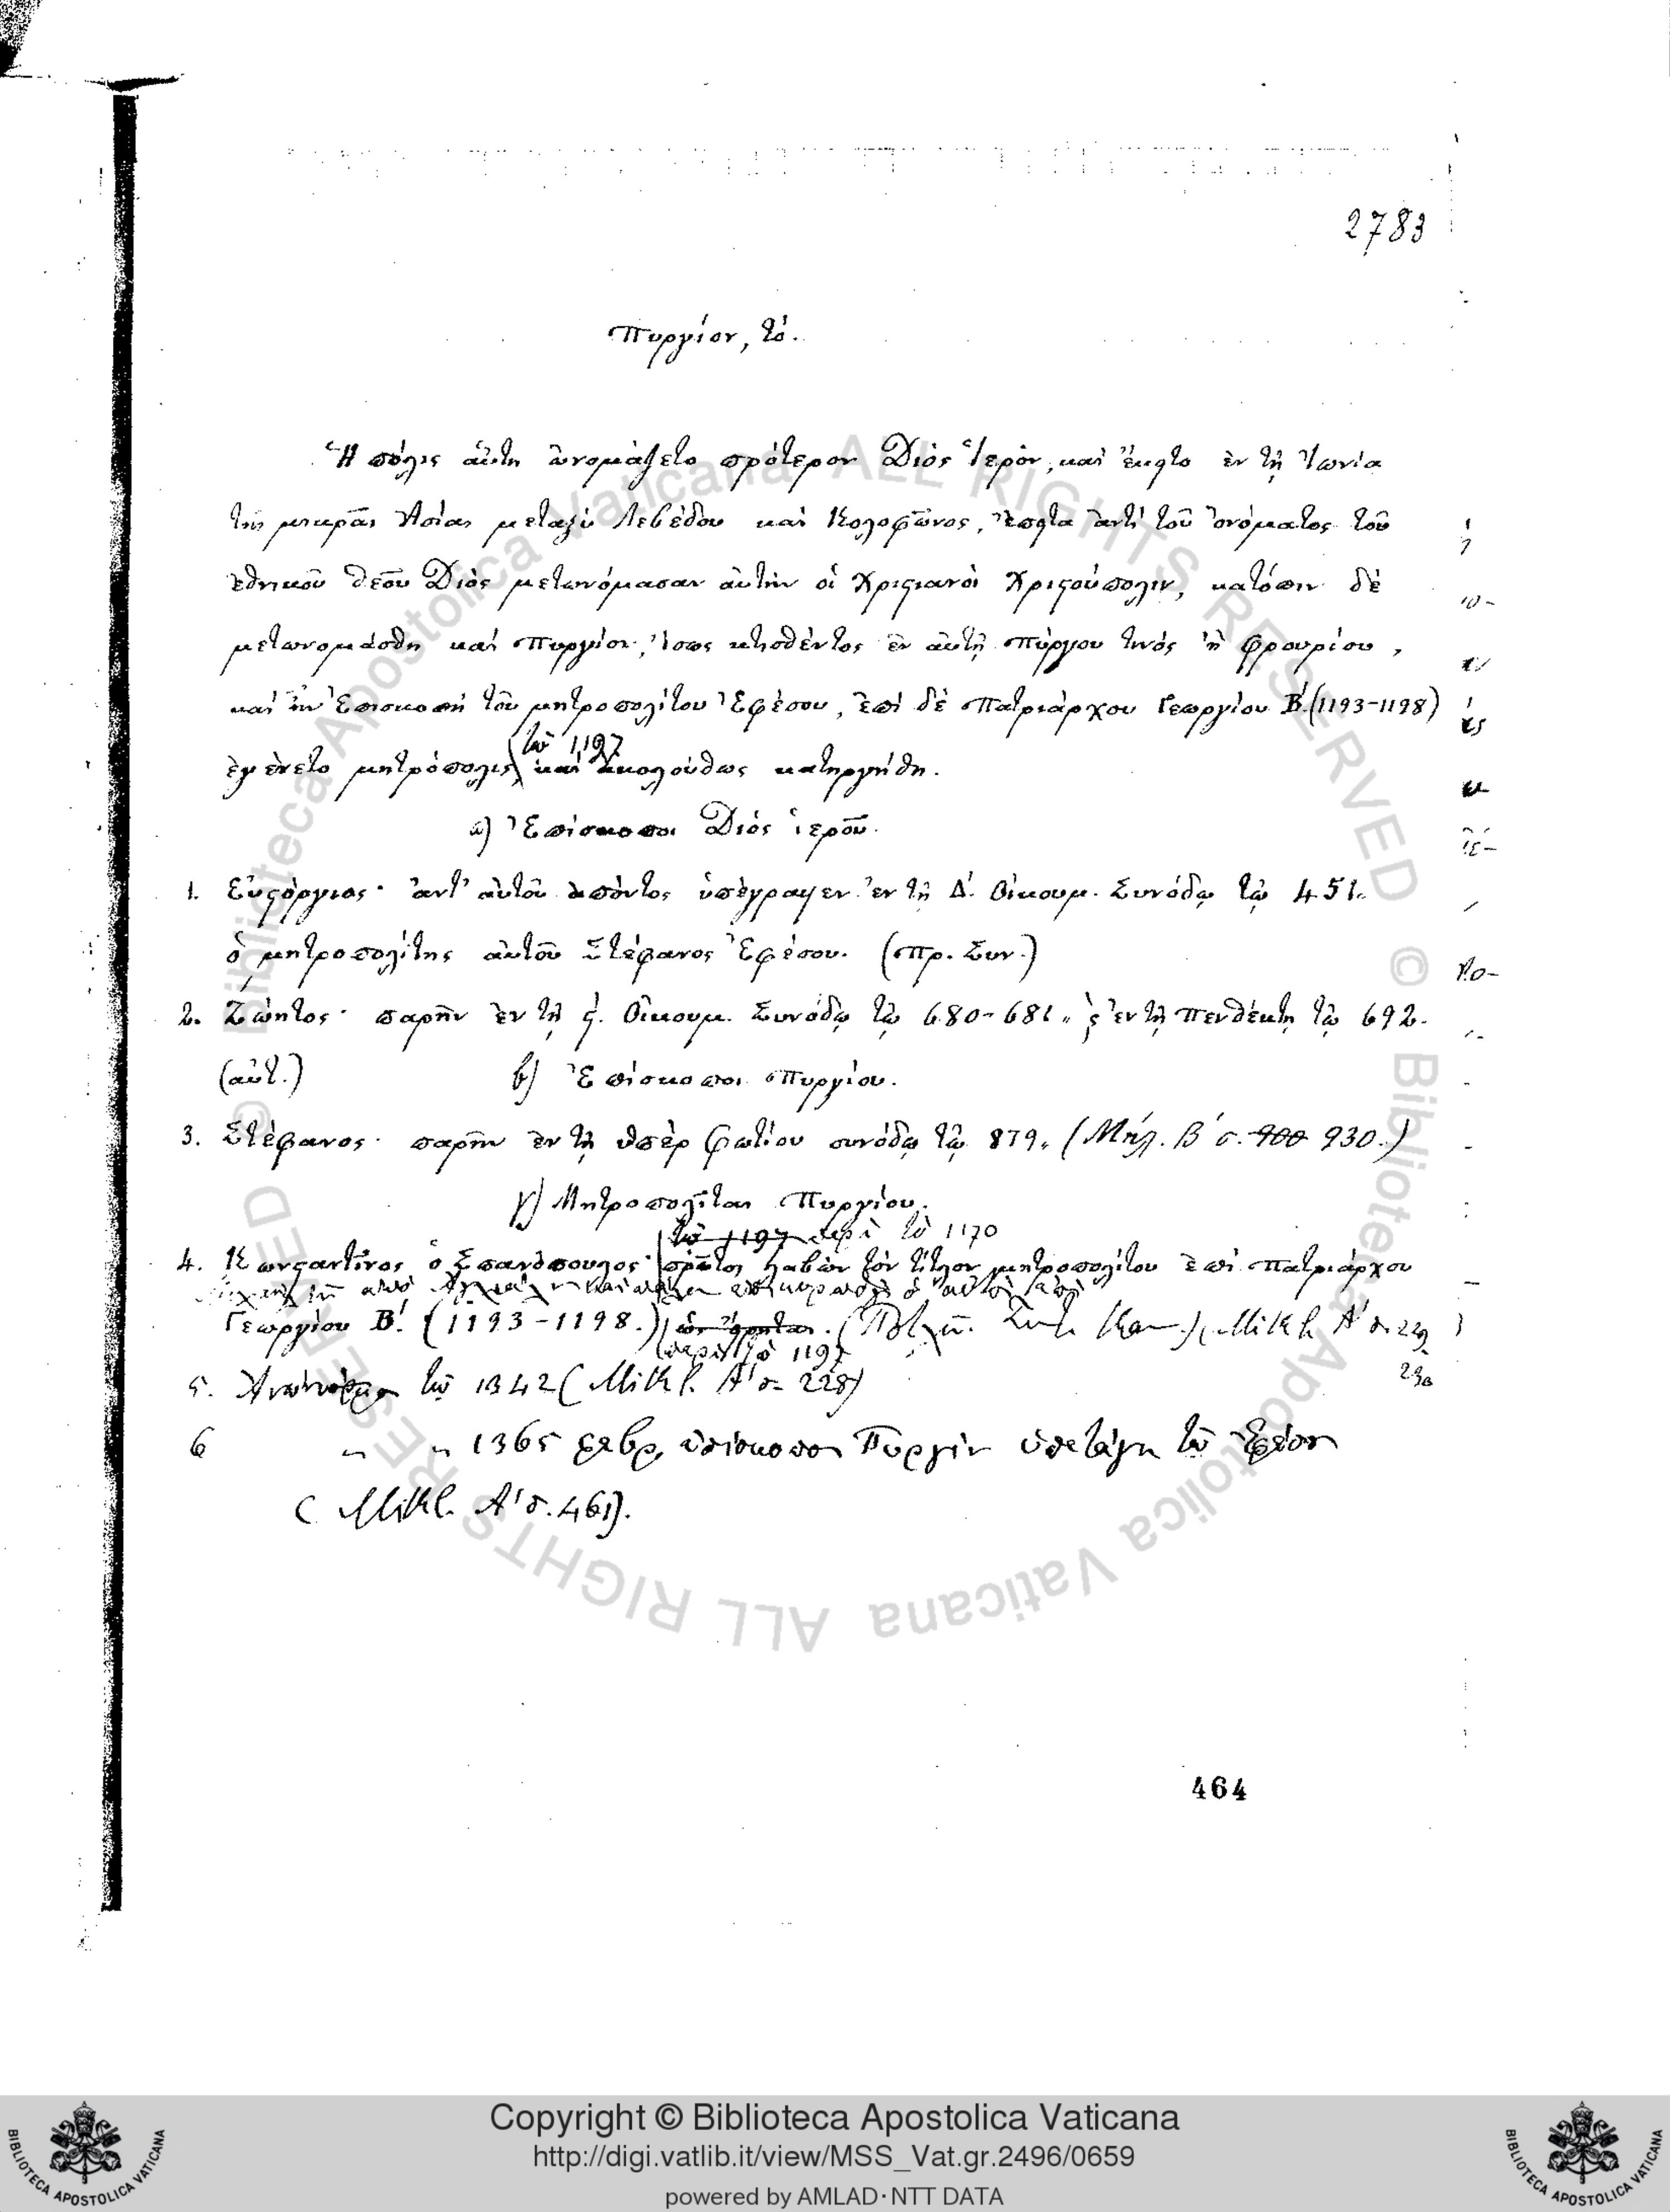 2783
Πυργίον, τό.
Ἡ πόλις αὕτη ὠνομάζετο πρότερον Διὸς Ἱερόν, καὶ ἔκειτο ἐν τῇ Ἰωνίᾳ
τῆς μικρᾶς Ἀσίας μεταξὺ Λεβέδου καὶ Κολοφῶνος, ἔπειτα ἀντὶ τοῦ ὀνόματος τοῦ
ἐθνικοῦ θεοῦ Διὸς μετωνόμασαν αὐτὴν οἱ Χριστιανοὶ Χριστούπολιν, κατόπιν δὲ
μετωνομάσθη καὶ Πυργίον, ἴσως κτισθέντος ἐν αὐτῇ πύργου τινὸς ἢ φρουρίου,
καὶ ἦν Ἐπισκοπὴ τοῦ μητροπολίτου Ἐφέσου, ἐπὶ δὲ Πατριάρχου Γεωργίου Β΄. (1193-1198)
τῷ 1197
ἐγένετο μητρόπολις, καὶ ἀκολούθως κατηργήθη.
α) Ἐπίσκοποι Διὸς ἱεροῦ.
1. Εὐστόργιος· ἀντ' αὐτοῦ ἀπόντος ὑπέγραψεν ἐν τῇ Δ΄. Οἰκουμ. Συνόδῳ τῷ 451.
ὁ μητροπολίτης αὐτοῦ Στέφανος Ἐφέσου. (Πρ. Συν.)
2. Ζώητος· παρῆν ἐν τῇ ϛ΄. Οἰκουμ. Συνόδῳ τῷ 680-681. ϗ ἐν τῇ Πενθέκτῃ τῷ 692.
(αὐτ.) β) Ἐπίσκοποι Πυργίου.
3. Στέφανος· παρῆν ἐν τῇ ὑπὲρ Φωτίου συνόδῳ τῷ 879. (Μήλ. Β΄ σ. 900 930.)
γ) Μητροπολῖται Πυργίου.
τῷ 1197 περὶ τὸ 1170
4. Κωνσταντῖνος ὁ Σπανόπουλος· πρῶτος λαβὼν τὸν τίτλον μητροπολίτου ἐπὶ Πατριάρχου
Γεωργίου Β΄. (1193-1198.) (Mikl. Α΄ σ. 229
περὶ τὸ 1197
230
5. τῷ 1342 (Mikl. Α΄ σ. 228)
6 " " 1365 φεβρ. ἐπίσκοπος Πυργίου ὑπετάγη τῷ Ἐφέσου
(Mikl. Α΄ σ. 461).
464
Copyright © Biblioteca Apostolica Vaticana
http://digi.vatlib.it/view/MSS_Vat.gr.2496/0659
powered by AMLAD·NTT DATA
© Biblioteca Apostolica Vaticana ALL RIGHTS RESERVED © Biblioteca Apostolica Vaticana ALL RIGHTS RESERVED
BIBLIOTECA APOSTOLICA VATICANA
BIBLIOTECA APOSTOLICA VATICANA